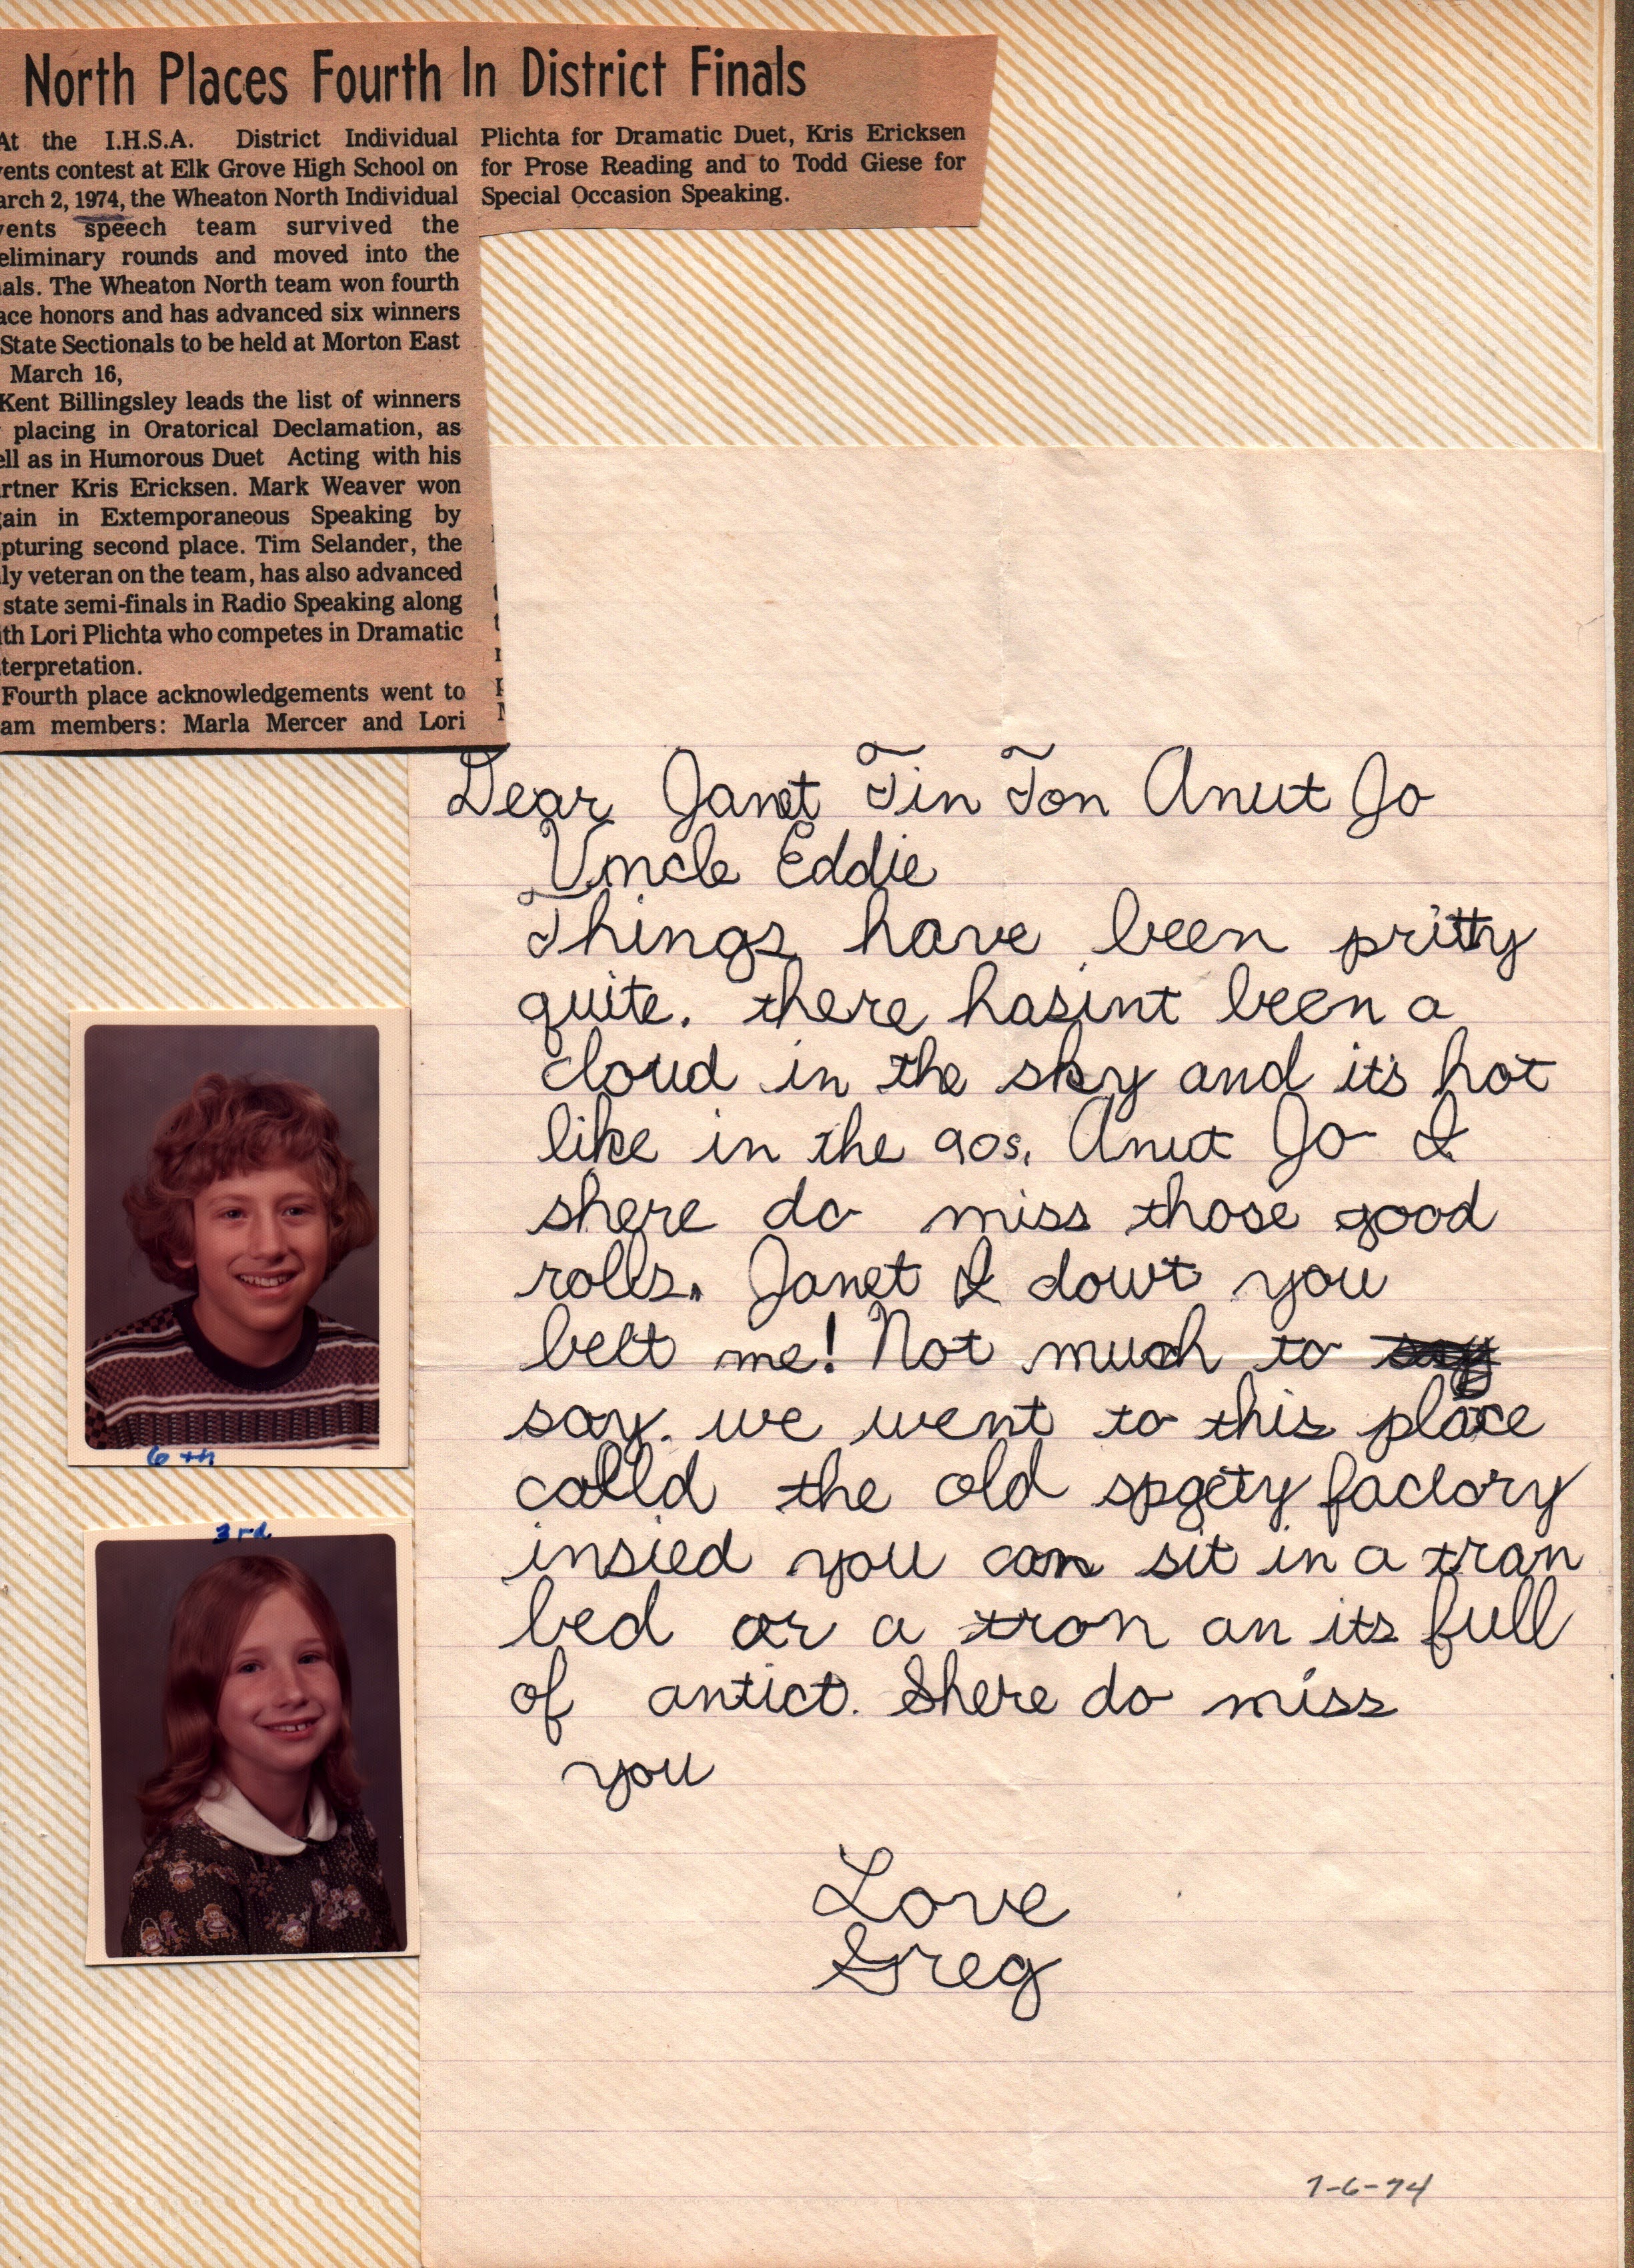 North Places Fourth In District Finals
At the I.H.S.A. District Individual
vents contest at Elk Grove High School on
arch 2, 1974, the Wheaton North Individual
vents speech team survived the
eliminary rounds and moved into the
nals. The Wheaton North team won fourth
ace honors and has advanced six winners
State Sectionals to be held at Morton East
March 16,
Kent Billingsley leads the list of winners
placing in Oratorical Declamation, as
ell as in Humorous Duet Acting with his
artner Kris Ericksen. Mark Weaver won
gain in Extemporaneous Speaking by
apturing second place. Tim Selander, the
nly veteran on the team, has also advanced
state semi-finals in Radio Speaking along
ith Lori Plichta who competes in Dramatic
terpretation.
Fourth place acknowledgements went to
am members: Marla Mercer and Lori
Plichta for Dramatic Duet, Kris Ericksen
for Prose Reading and to Todd Giese for
Special Occasion Speaking.
Dear Janet Tin Ton Anut Jo
Umcle Eddie
Things have been pritty
quite. there hasint been a
cloud in the sky and its hot
like in the 90s. Anut Jo I
shere do miss those good
rolls. Janet I dowt you
belt me! Not much to say
say. we went to this place
calld the old spgety factory
insied you can sit in a tran
bed or a tron an its full
of antict. Shere do miss
you
Love
Greg
7-6-74
6th
3rd